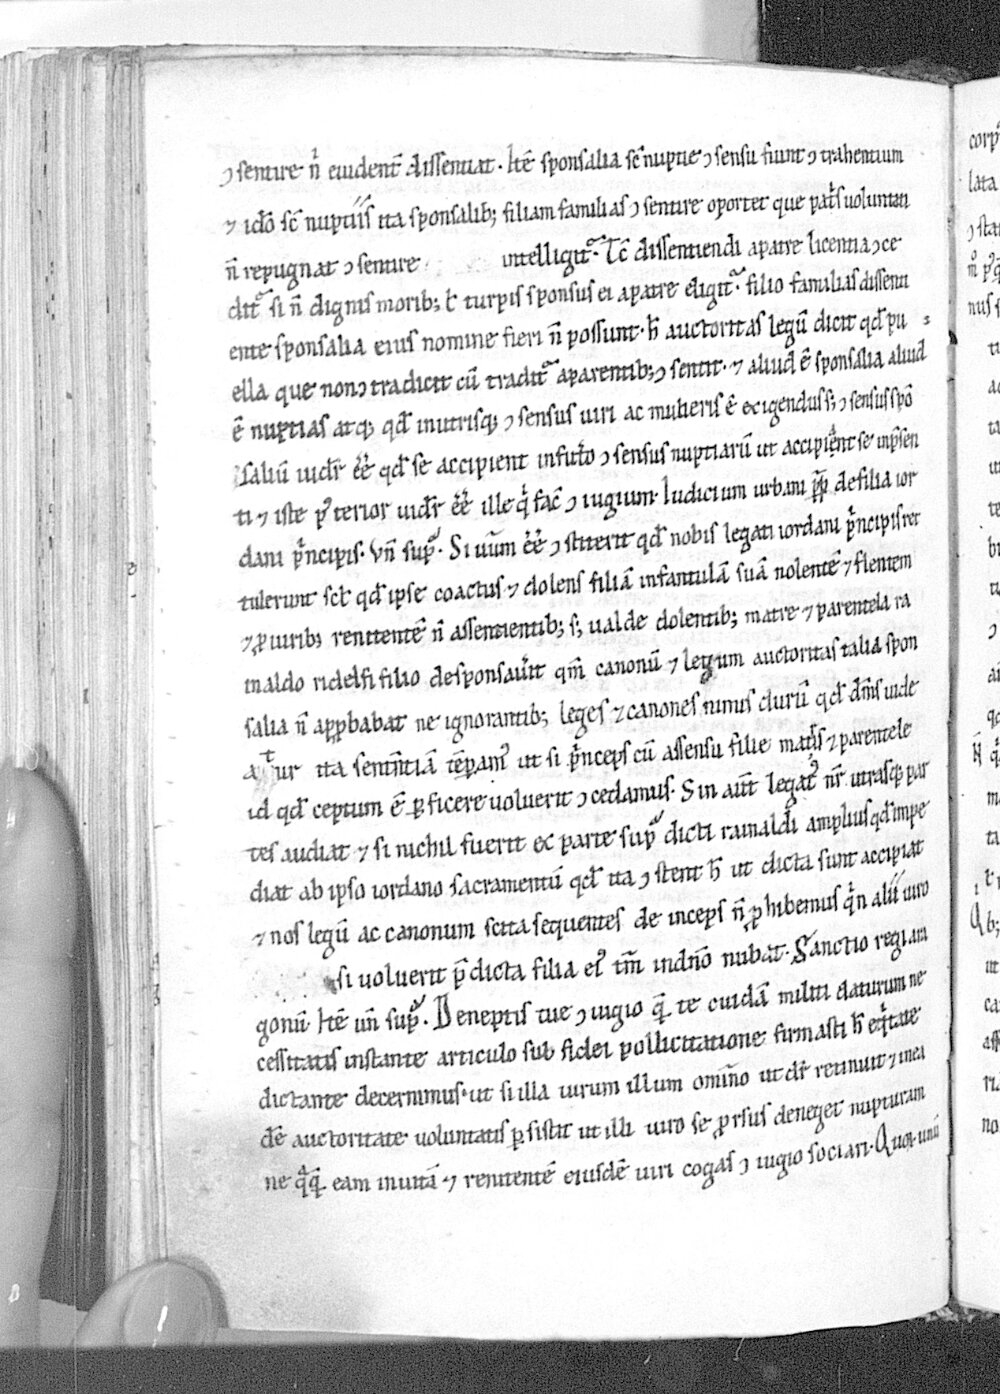 ↄ sentire n̄ euident̄ dissentiat. Itē sponsalia sic̄ nuptie ↄ sensu fiunt ↄ trahentium
⁊ idō sic̄ nuptiis ita sponsalib; filiam familias ↄ sentire oportet que pat̄s uoluntati
n̄ repugnat ↄ sentire intelligit᷑. Tc̄ dissentiendi a patre licentia ↄ ce
dit᷑ si n̄ dignis morib; ł turpis sponsus ei a patre eligit᷑. filio familias dissenti
ente sponsalia eius nomine fieri n̄ possunt. h̄ auctoritas legū dicit qd̄ pu
ella que non ↄ tradicit cū tradit᷑ a parentib; ↄ sentit. ⁊ aliud ē sponsalia aliud
ē nuptias atq; qd̄ in utrisq; ↄ sensus uiri ac mulieris ē exigendus s; ↄ sensus spō
saliū uidet᷑ ēē qd̄ se accipient in futō ↄ sensus nuptiarū ut accipient se in p̄sen
ti ⁊ iste posterior uidet᷑ ēē ille q̄ fac̄ ↄ iugium. Iudicium urbani pp̄ de filia ior
dani p̄ncipis. Vn̄ sup᷑. Si uūm ēē ↄ stiterit qd̄ nobis legati iordani p̄ncipis ret
tulerunt scł qd̄ ipse coactus ⁊ dolens filiā infantulā suā nolentē ⁊ flentem
⁊ ꝓ uirib; renitentē n̄ assentientib; s; ualde dolentib; matre ⁊ parentela ra
inaldo ridelfi filio desponsau̅it qm̄ canonū ⁊ legum auctoritas talia spon
salia n̄ aꝓbabat ne ignorantib; leges ⁊ canones nimis durū qd̄ dm̄s uide
at᷑ ita sentn̄tiā tēꝑam᷒ ut si p̄nceps cū assensu filie mat̄s ⁊ parentele
id qd̄ ceptum ē ꝑficere uoluerit ↄ cedamus. Sin aūt legat᷒ nr̄ utrasq; par
tes audiat ⁊ si nichil fuerit ex parte sup᷑ dicti rainaldi amplius qd̄ impe
diat ab ipso iordano sacramentū qd̄ ita ↄ stent h̄ ut dicta sunt accipiat
⁊ nos legū ac canonum scita sequentes de inceps n̄ ꝓhibemus q̄n alii uiro
si uoluerit p̄dicta filia ei᷒ tm̄ in dn̄o nubat. Sanctio regi ara
gonū Itē un̄ sup᷑. De neptis tue ↄ iugio q̄ te cuidā militi daturum ne
cessitatis instante articulo sub fidei pollicitatione firmasti h̄ eq̄tate
dictante decernimus. ut si illa uirum illum omīno ut dr̄ renuit ⁊ in ea
dē auctoritate uoluntatis ꝑsistit ut illi uiro se ꝓrsus deneget nupturam
ne q̄q̄ eam inuitā ⁊ renitentē eiusdē uiri cogas ↄ iugio sociari. Quor. unū